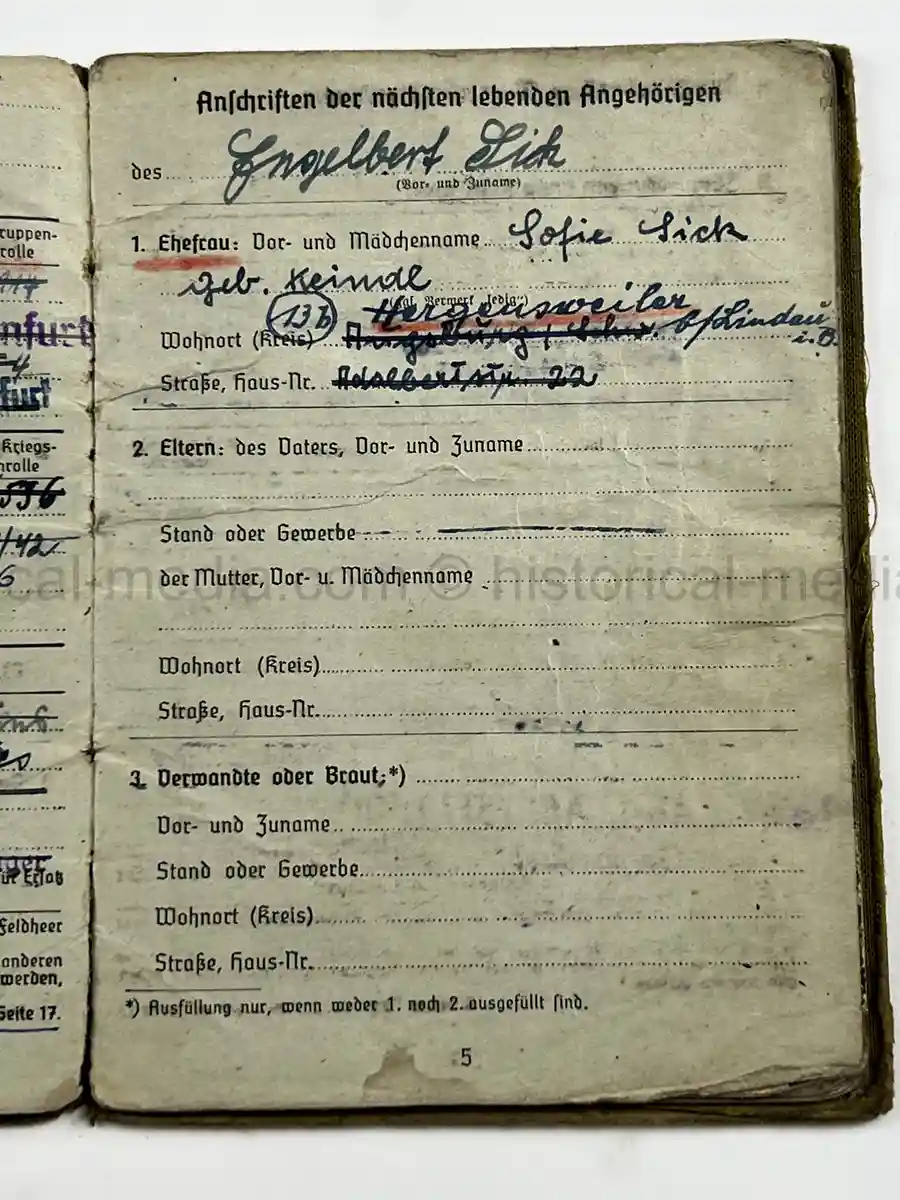 ruppen-
rolle
nfurt
furt
Kriegs-
nrolle
596
/42
6
ger
ür Ersatz
Feldheer
anderen
werden,
Seite 17.
Anschriften der nächsten lebenden Angehörigen
des Engelbert Sick
(Vor- und Zuname)
1. Ehefrau: Vor- und Mädchenname Sofie Sick
geb. Keindl
(ggf. Vermerk „ledig“)
(13b) Hergensweiler b/Lindau i. B.
Wohnort (Kreis) Augsburg / Schw.
Straße, Haus-Nr. Adalbertstr. 22
2. Eltern: des Vaters, Vor- und Zuname
Stand oder Gewerbe
der Mutter, Vor- u. Mädchenname
cal-media.com © historical-media
Wohnort (Kreis)
Straße, Haus-Nr.
3. Verwandte oder Braut:*)
Vor- und Zuname
Stand oder Gewerbe
Wohnort (Kreis)
Straße, Haus-Nr.
*) Ausfüllung nur, wenn weder 1. noch 2. ausgefüllt sind.
5